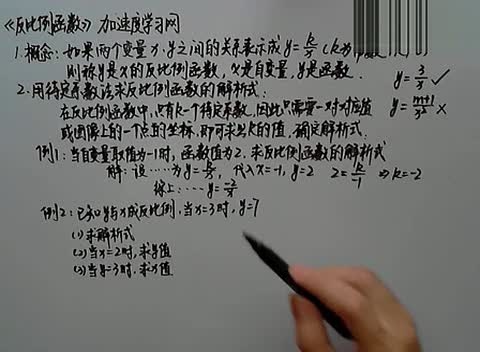 《反比例函数》 加速度学习网
1.概念:如果两个变量x、y之间的关系表示成y=k/x (k为
则称y是x的反比例函数,x是自变量,y是函数.
y=3/x ✓
y=m+1/x² ×
2.用待定系数法求反比例函数的解析式:
在反比例函数中,只有k一个待定系数,因此只需要一对对应值
或图像上的一个点的坐标,即可求出k的值,确定解析式.
例1:当自变量取值为-1时,函数值为2.求反比例函数的解析式
解:设……为y=k/x,代入x=-1,y=2 2=k/-1 ⇒k=-2
综上:…y=-2/x
例2:已知y与x成反比例,当x=3时,y=7
(1)求解析式
(2)当x=2时,求y值
(3)当y=3时,求x值